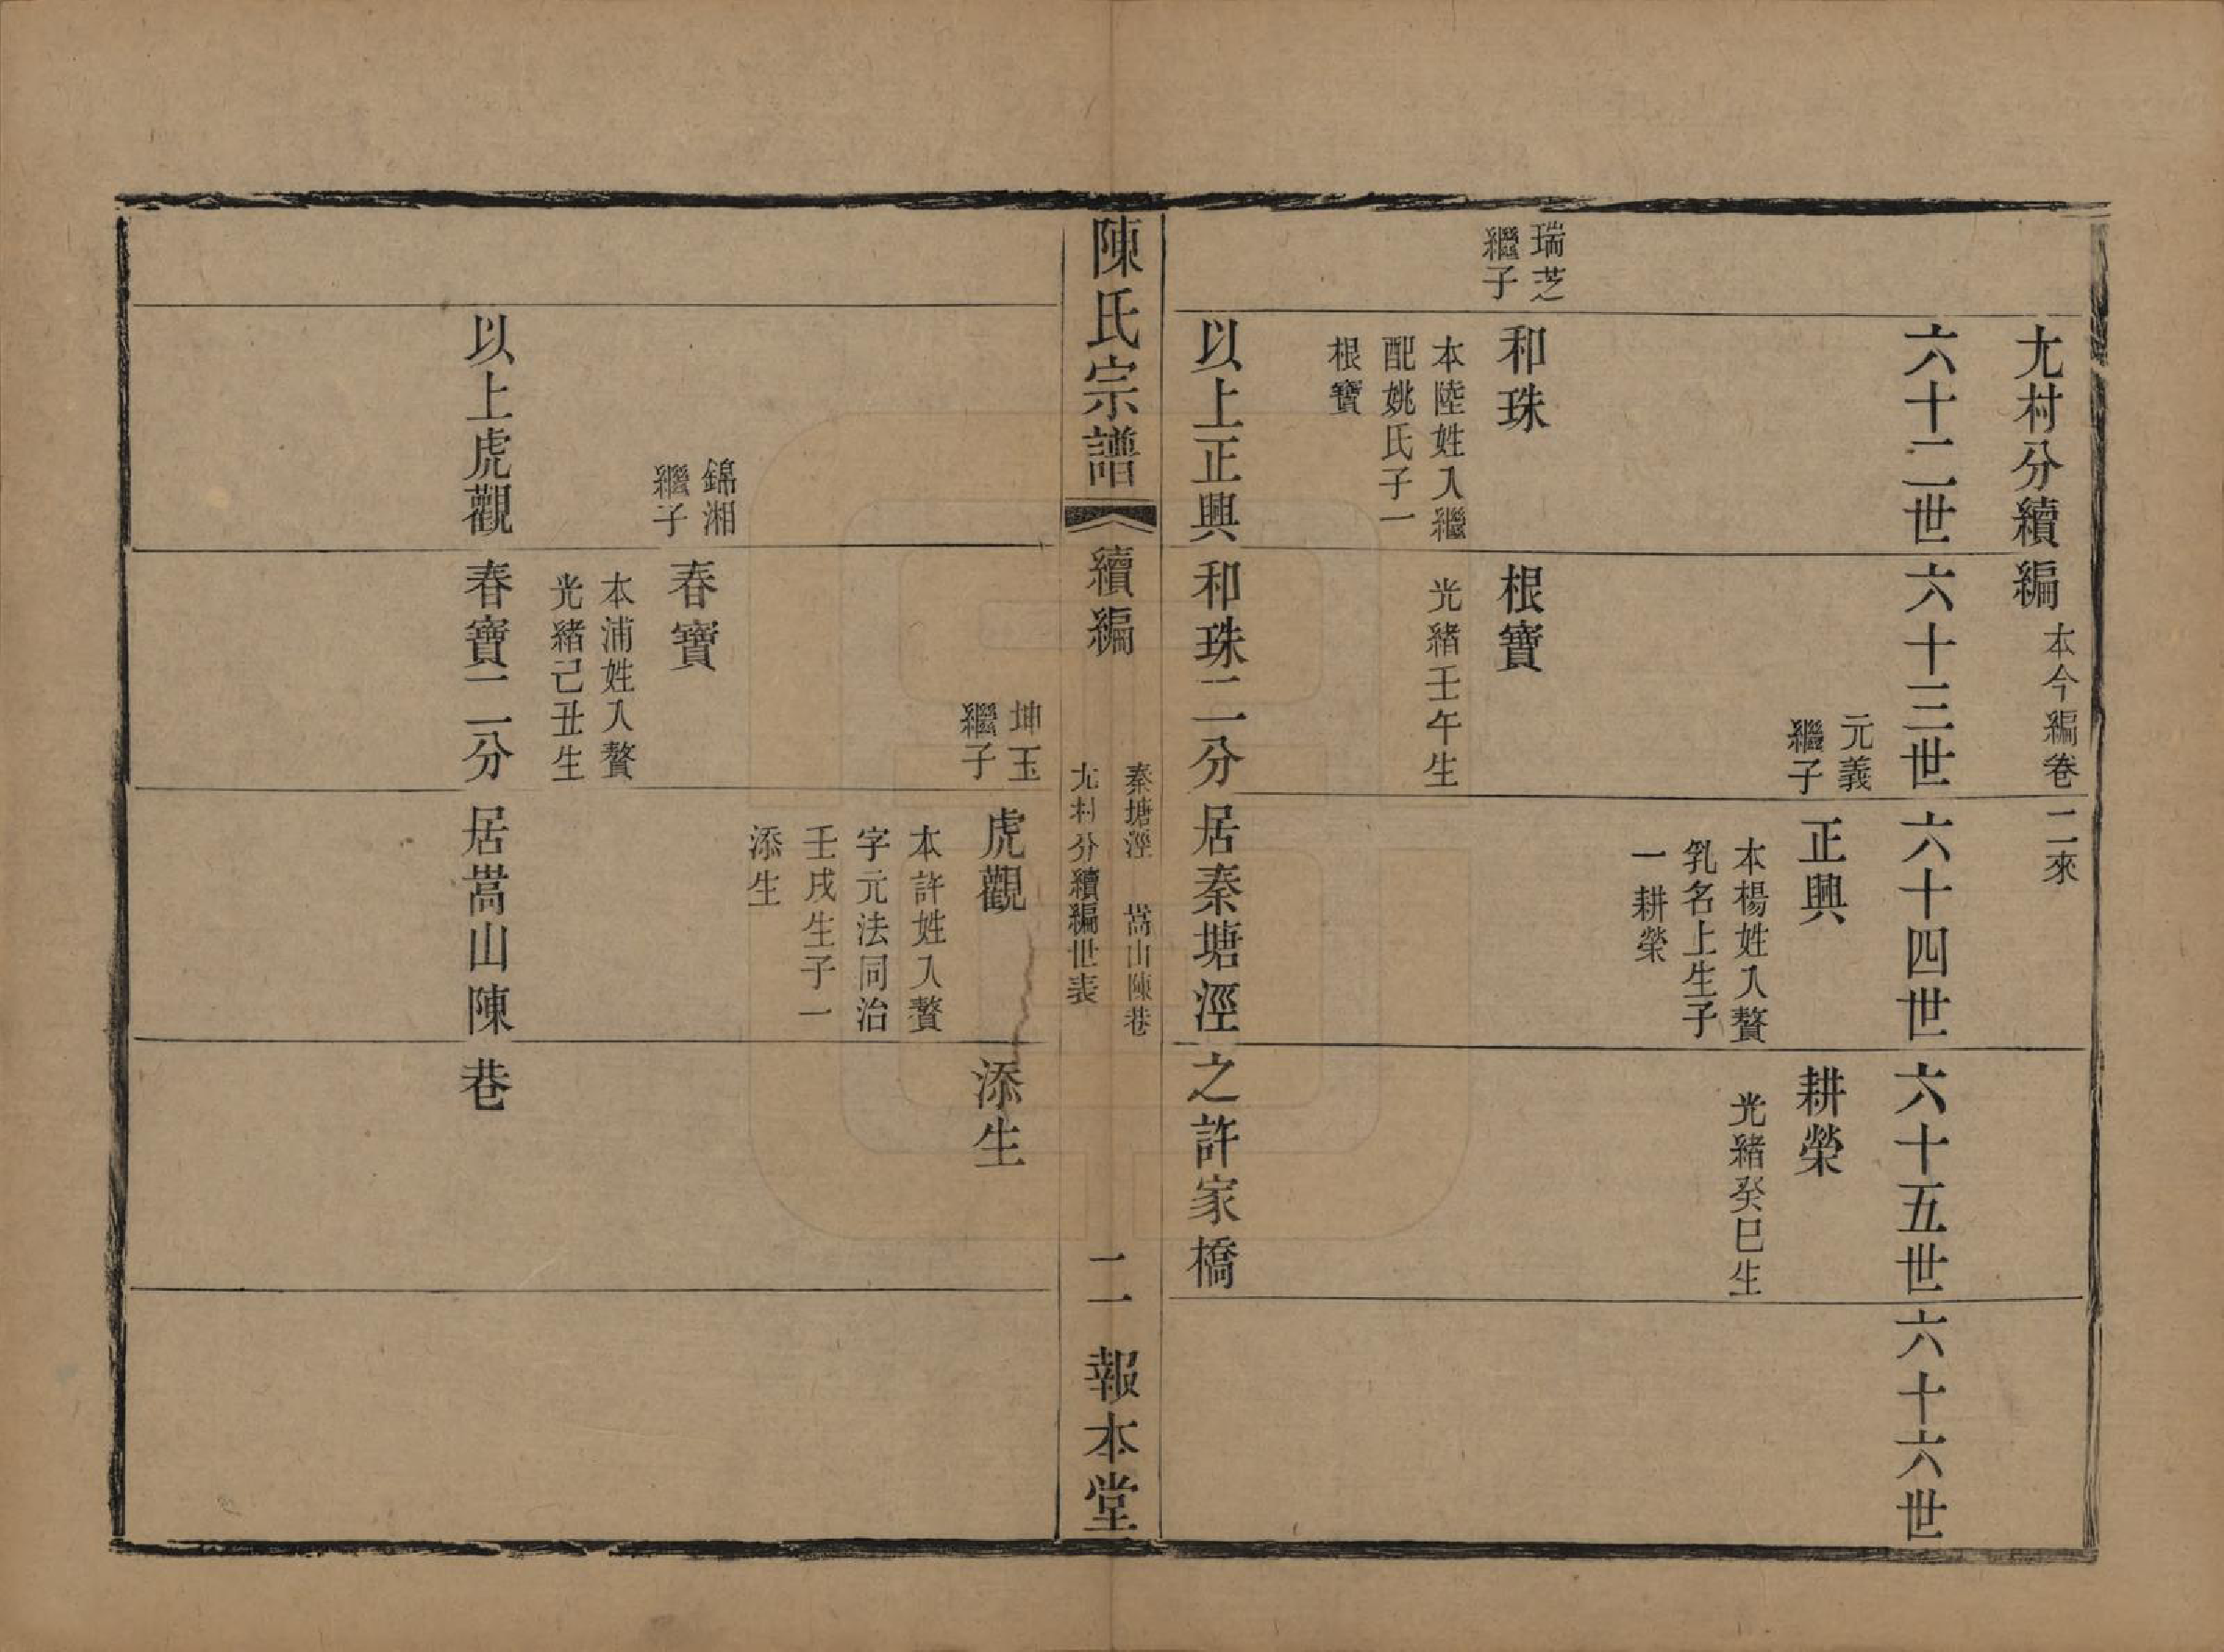 尤村分續編 本今編卷二來
六十二世 六十三世 六十四世 六十五世 六十六世
元義
繼子
正興
本楊姓入贅
乳名上生子
一耕榮
耕榮
光緒癸巳生
瑞芝
繼子
和珠
本陸姓入繼
配姚氏子一
根寶
根寶
光緒壬午生
以上正興和珠二分居秦塘涇之許家橋
陳氏宗譜 續編
秦塘涇 嵩山陳巷
尤村分續編世表
二 報本堂
坤玉
繼子
虎觀
本許姓入贅
字元法同治
壬戌生子一
添生
添生
錦湘
繼子
春寶
本浦姓入贅
光緒己丑生
以上虎觀春寶二分居嵩山陳巷